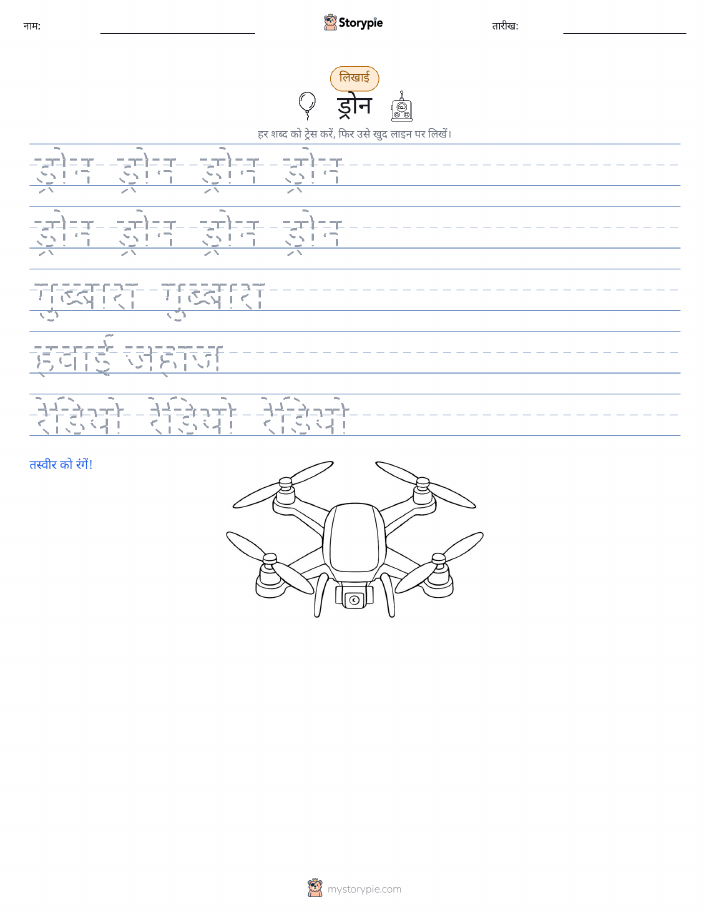 नाम:
Storypie
तारीख:
लिखाई
ड्रोन
हर शब्द को ट्रेस करें, फिर उसे खुद लाइन पर लिखें।
ड्रोन ड्रोन ड्रोन ड्रोन
ड्रोन ड्रोन ड्रोन ड्रोन
गुब्बारा गुब्बारा
हवाई जहाज
रेडियो रेडियो रेडियो
तस्वीर को रंगें!
mystorypie.com